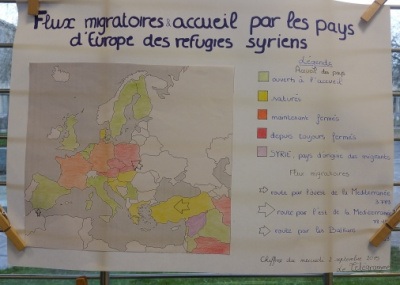 Flux migratoires & accueil par les pays
d'Europe des réfugiés syriens
Légende
Accueil des pays
ouverts à l'accueil
saturés
maintenant fermés
depuis toujours fermés
SYRIE, pays d'origine des migrants
Flux migratoires
route par l'ouest de la Méditerranée
route par l'est de la Méditerranée
route par les Balkans
Chiffres du mercredi septembre 2015
Le Télégramme